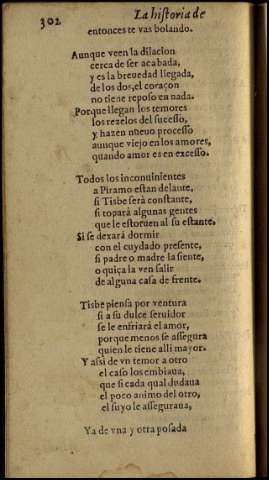 302
La historia de
entonces te vas bolando.
Aunque veen la dilacion
cerca de ser acabada,
y es la breuedad llegada,
de los dos, el coraçon
no tiene reposo en nada.
Porque llegan los temores
los rezelos del sucesso,
y hazen nueuo processo
aunque viejo en los amores,
quando amor es en excesso.
Todos los inconuinientes
a Piramo estan delante,
si Tisbe serà constante,
si topará algunas gentes
que le estoruen al su estante.
Si se dexará dormir
con el cuydado presente,
si padre o madre la siente,
o quiça la ven salir
de alguna casa de frente.
Tisbe piensa por ventura
si a su dulce seruidor
se le enfriará el amor,
porque menos se assegura
quien le tiene alli mayor.
Y assi de vn temor a otro
el caso los embiaua,
que si cada qual dudaua
el poco animo del otro,
el suyo le asseguraua,
Ya de vna y otra posada